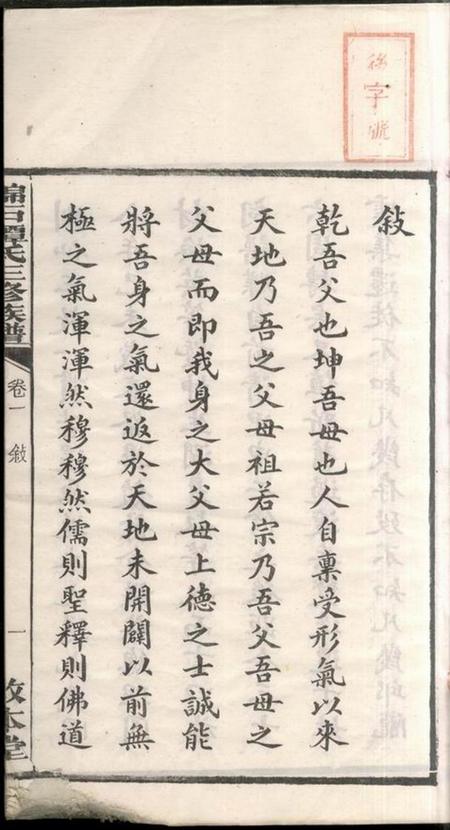 字號
敘
乾吾父也坤吾母也人自稟受形氣以來
天地乃吾之父母祖若宗乃吾父吾母之
父母而即我身之大父母上德之士誠能
將吾身之氣還返於天地未開闢以前無
極之氣渾渾然穆穆然儒則聖釋則佛道
氏三修族譜
卷一
敘
一
敦本堂